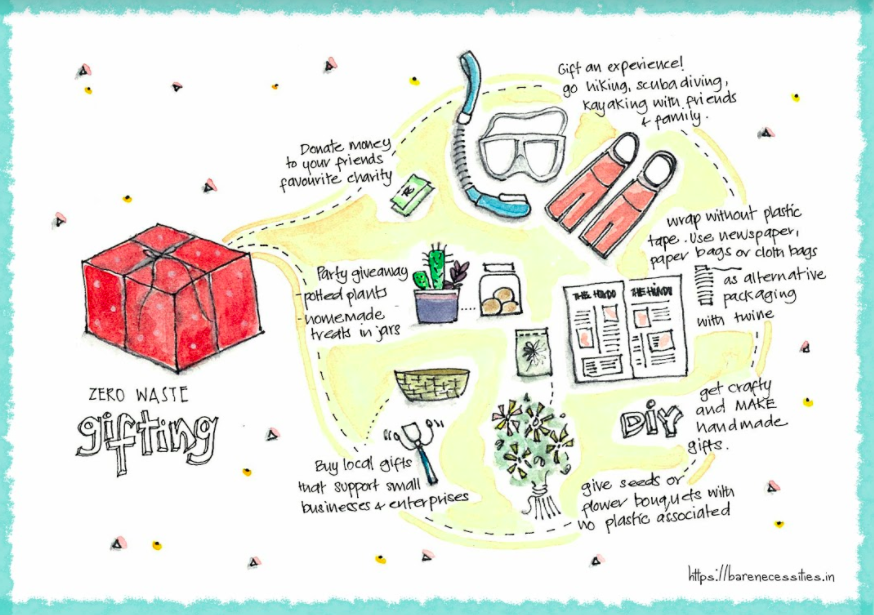 Gift an experience!
go hiking, scuba diving,
kayaking with friends
& family.
Donate money
to your friends
favourite charity
wrap without plastic
tape. Use newspaper,
paper bags or cloth bags
as alternative
packaging
with twine
THE HINDU THE HINDU
Party giveaway
-potted plants
-homemade
treats in jars
ZERO WASTE
gifting
DiY
get crafty
and MAKE
handmade
gifts.
Buy local gifts
that support small
businesses & enterprises
give seeds or
flower bouquets with
no plastic associated
https://barenecessities.in